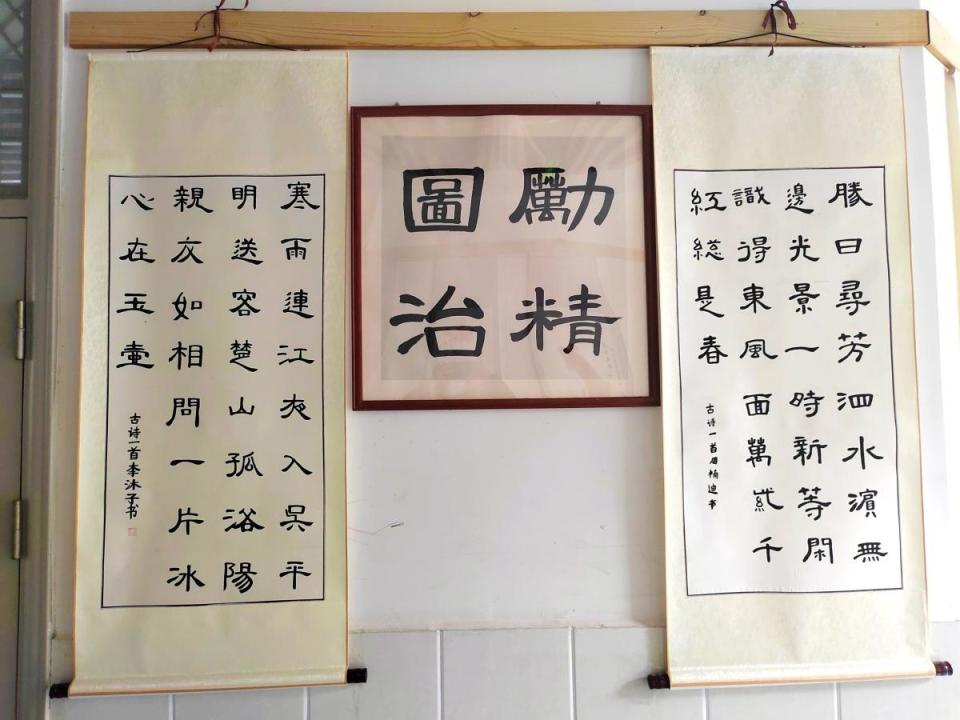 勝日尋芳泗水濱無
邊光景一時新等閑
識得東風面萬紫千
紅総是春
古诗一首迪书
勵精
圖治
寒雨連江夜入吳平
明送客楚山孤洛陽
親友如相問一片冰
心在玉壺
古诗一首李沐子书